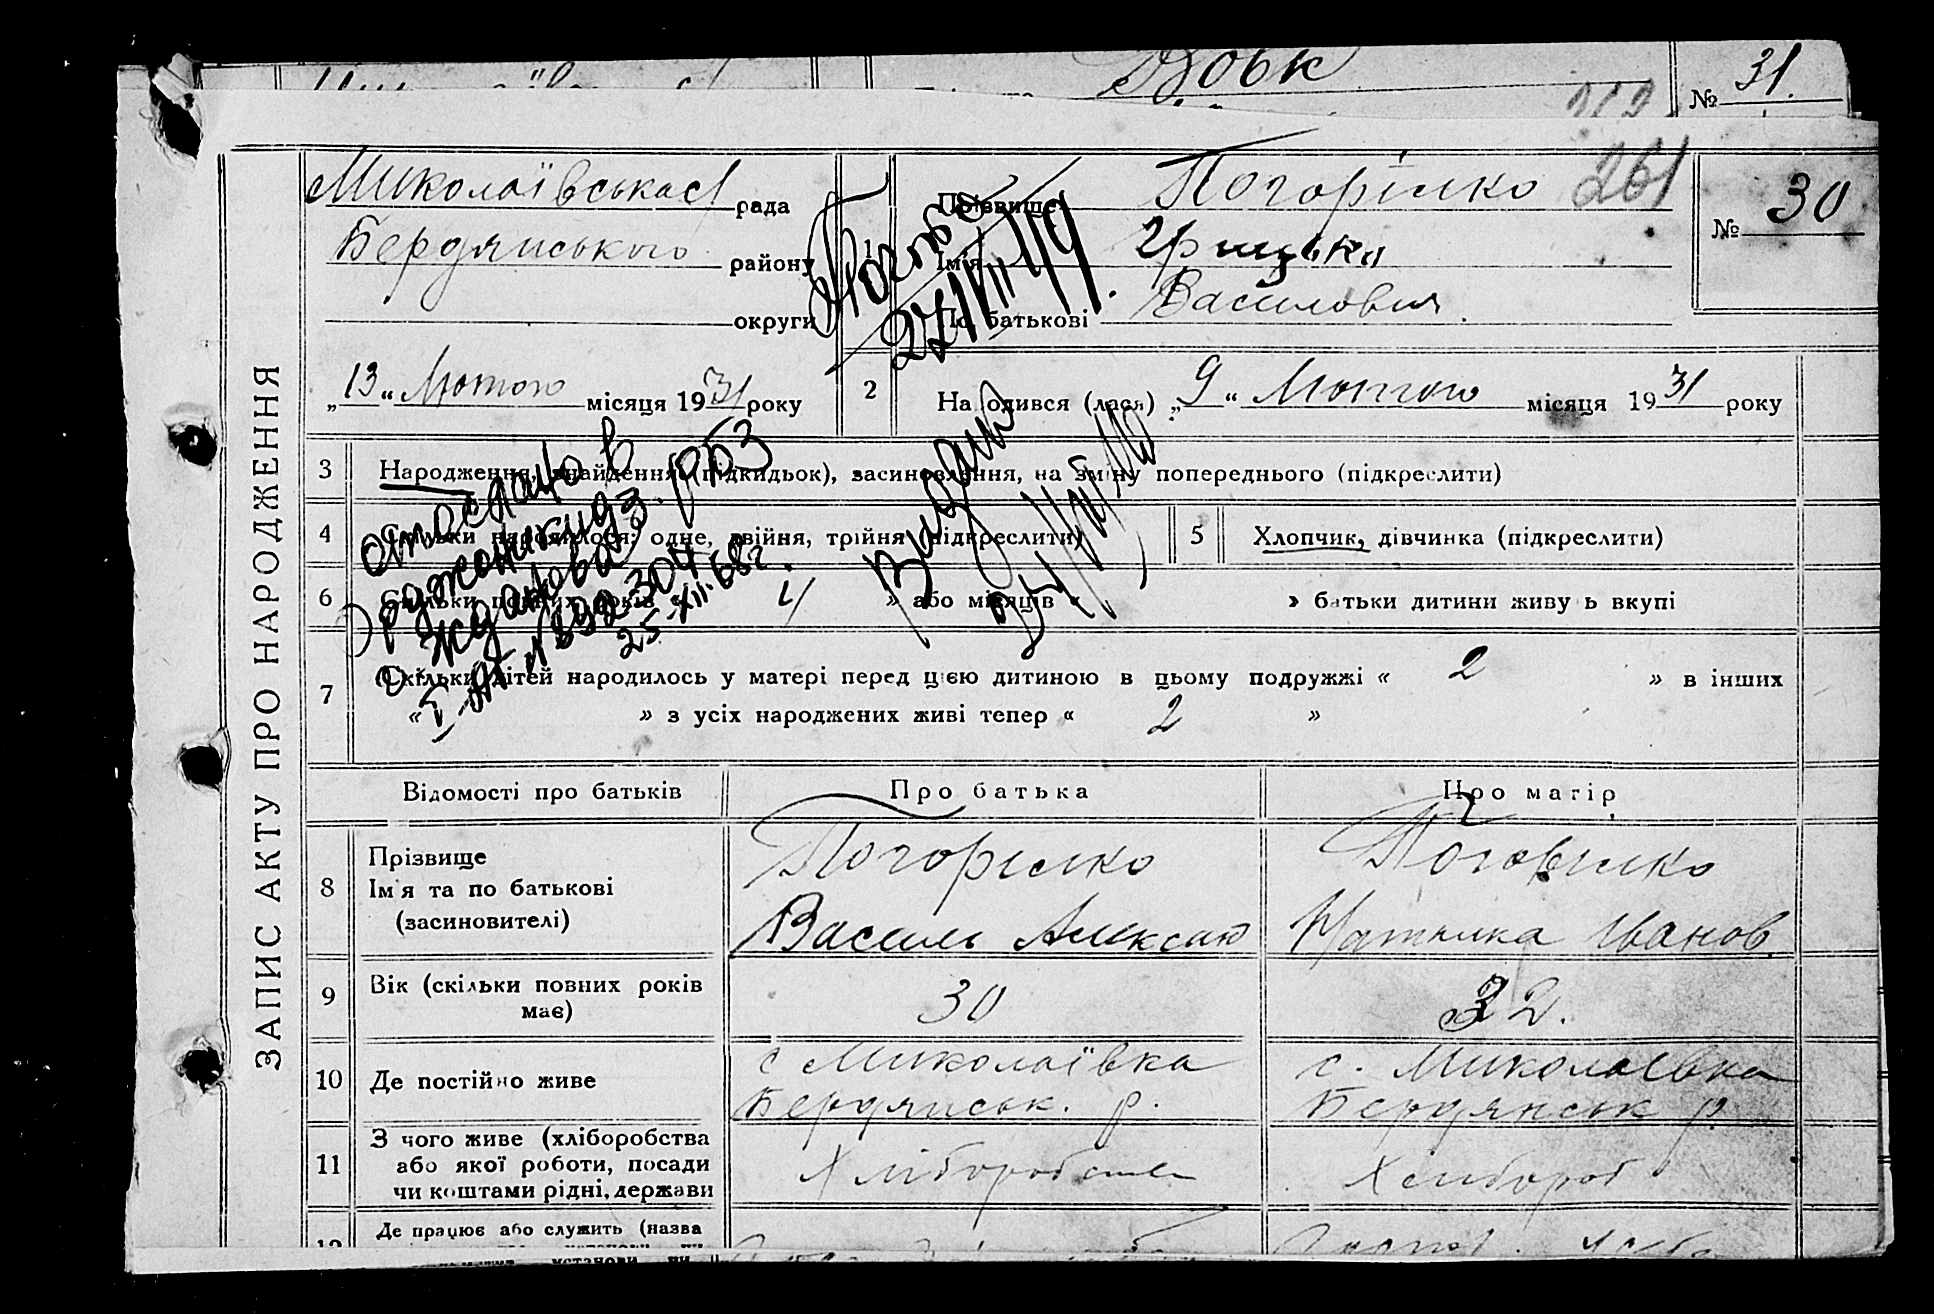 Вовк
№ 31.
ЗАПИС АКТУ ПРО НАРОДЖЕННЯ
Миколаївська рада
Бердянського району
округи
Прізвище Погорілко
261
№ 30
Ім'я Грицько
По батькові Василович
„13“ Лютого місяця 1931 року
2 Народився (лася) „9“ Лютого місяця 1931 року
3 Народження, знайдення (підкидьок), засиновлення, на зміну попереднього (підкреслити)
4 Скільки народилося: одне, двійня, трійня (підкреслити)
5 Хлопчик, дівчинка (підкреслити)
6 Скільки повних років « 4 » або місяців « » батьки дитини живуть вкупі
7 Скільки дітей народилось у матері перед цією дитиною в цьому подружжі « 2 » в інших
« » з усіх народжених живі тепер « 2 »
отослано в
Орджоникидз. РБЗ
г. Жданова
25-XII.68г.
Відомості про батьків Про батька Про матір
8 Прізвище
Ім'я та по батькові
(засиновителі)
Погорілко
Василь Александ
Погорілко
Іванов.
9 Вік (скільки повних років
має)
30
32.
10 Де постійно живе
с Миколаївка
Бердянськ. р.
с. Миколаївка
Бердянськ р.
11 З чого живе (хліборобства
або якої роботи, посади
чи коштами рідні, держави
Хлібороб
Де працює або служить (назва